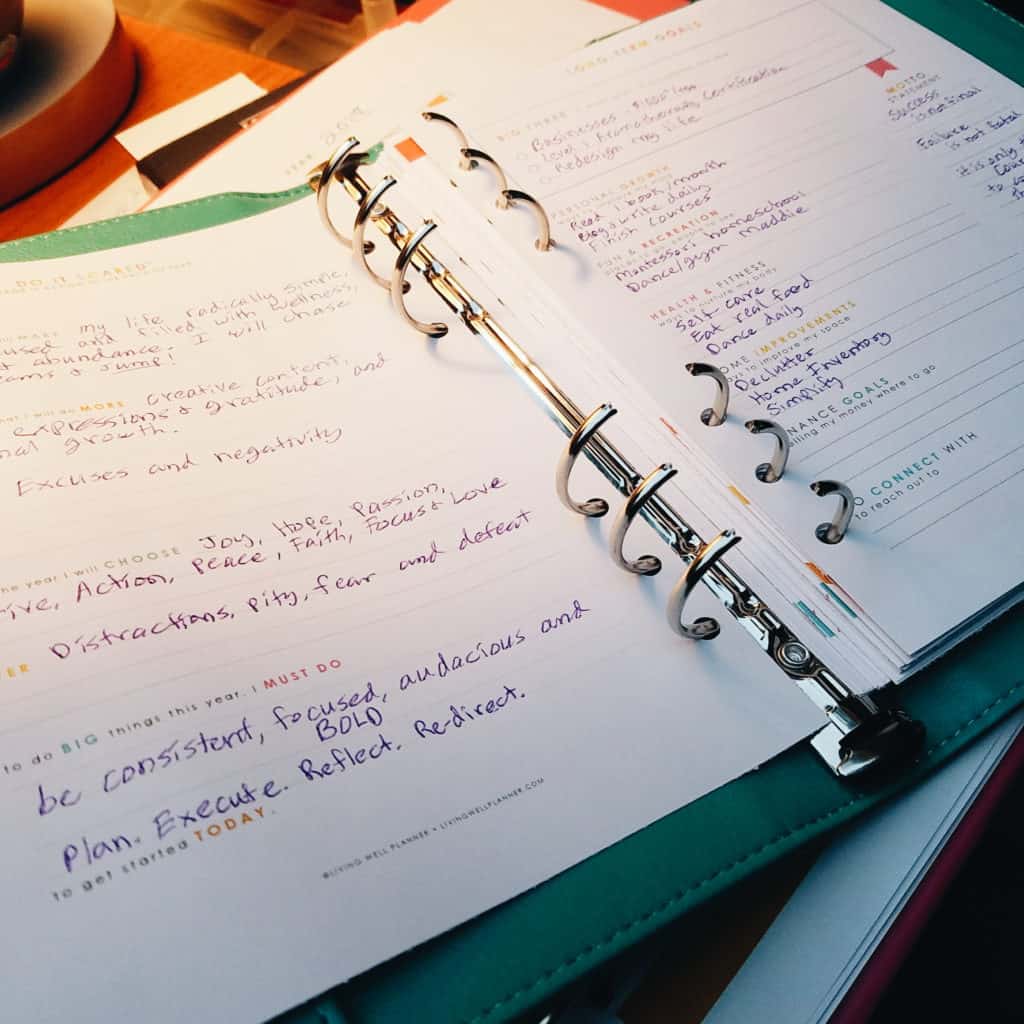 DO IT SCARED
my life radically simple,
and filled with wellness,
abundance. I will chase
& Jump!
I will do MORE creative content,
expressions & gratitude, and
growth.
Excuses and negativity
year I will CHOOSE Joy, Hope, Passion,
Action, Peace, Faith, Focus & Love
Distractions, pity, fear and defeat
to do BIG things this year, I MUST DO
be consistent, focused, audacious and
BOLD
Plan. Execute. Reflect. Re-direct.
to get started TODAY.
©LIVING WELL PLANNER • LIVINGWELLPLANNER.COM
LONG TERM GOALS
BIG THREE
Businesses
Level 1 Aromatherapy Certification
Redesign my life
PERSONAL GROWTH
Read 1 book/month
Blog & write daily
Finish Courses
FUN & RECREATION
Montessori homeschool
Dance/gym Maddie
HEALTH & FITNESS
ways to nurture my body
Self care
Eat real food
Dance daily
IMPROVEMENTS
to improve my space
Declutter
Home Inventory
Simplify
GOALS
my money where to go
CONNECT WITH
to reach out to
MOTTO
STATEMENT
Success
is not final
Failure
is not fatal
it is only